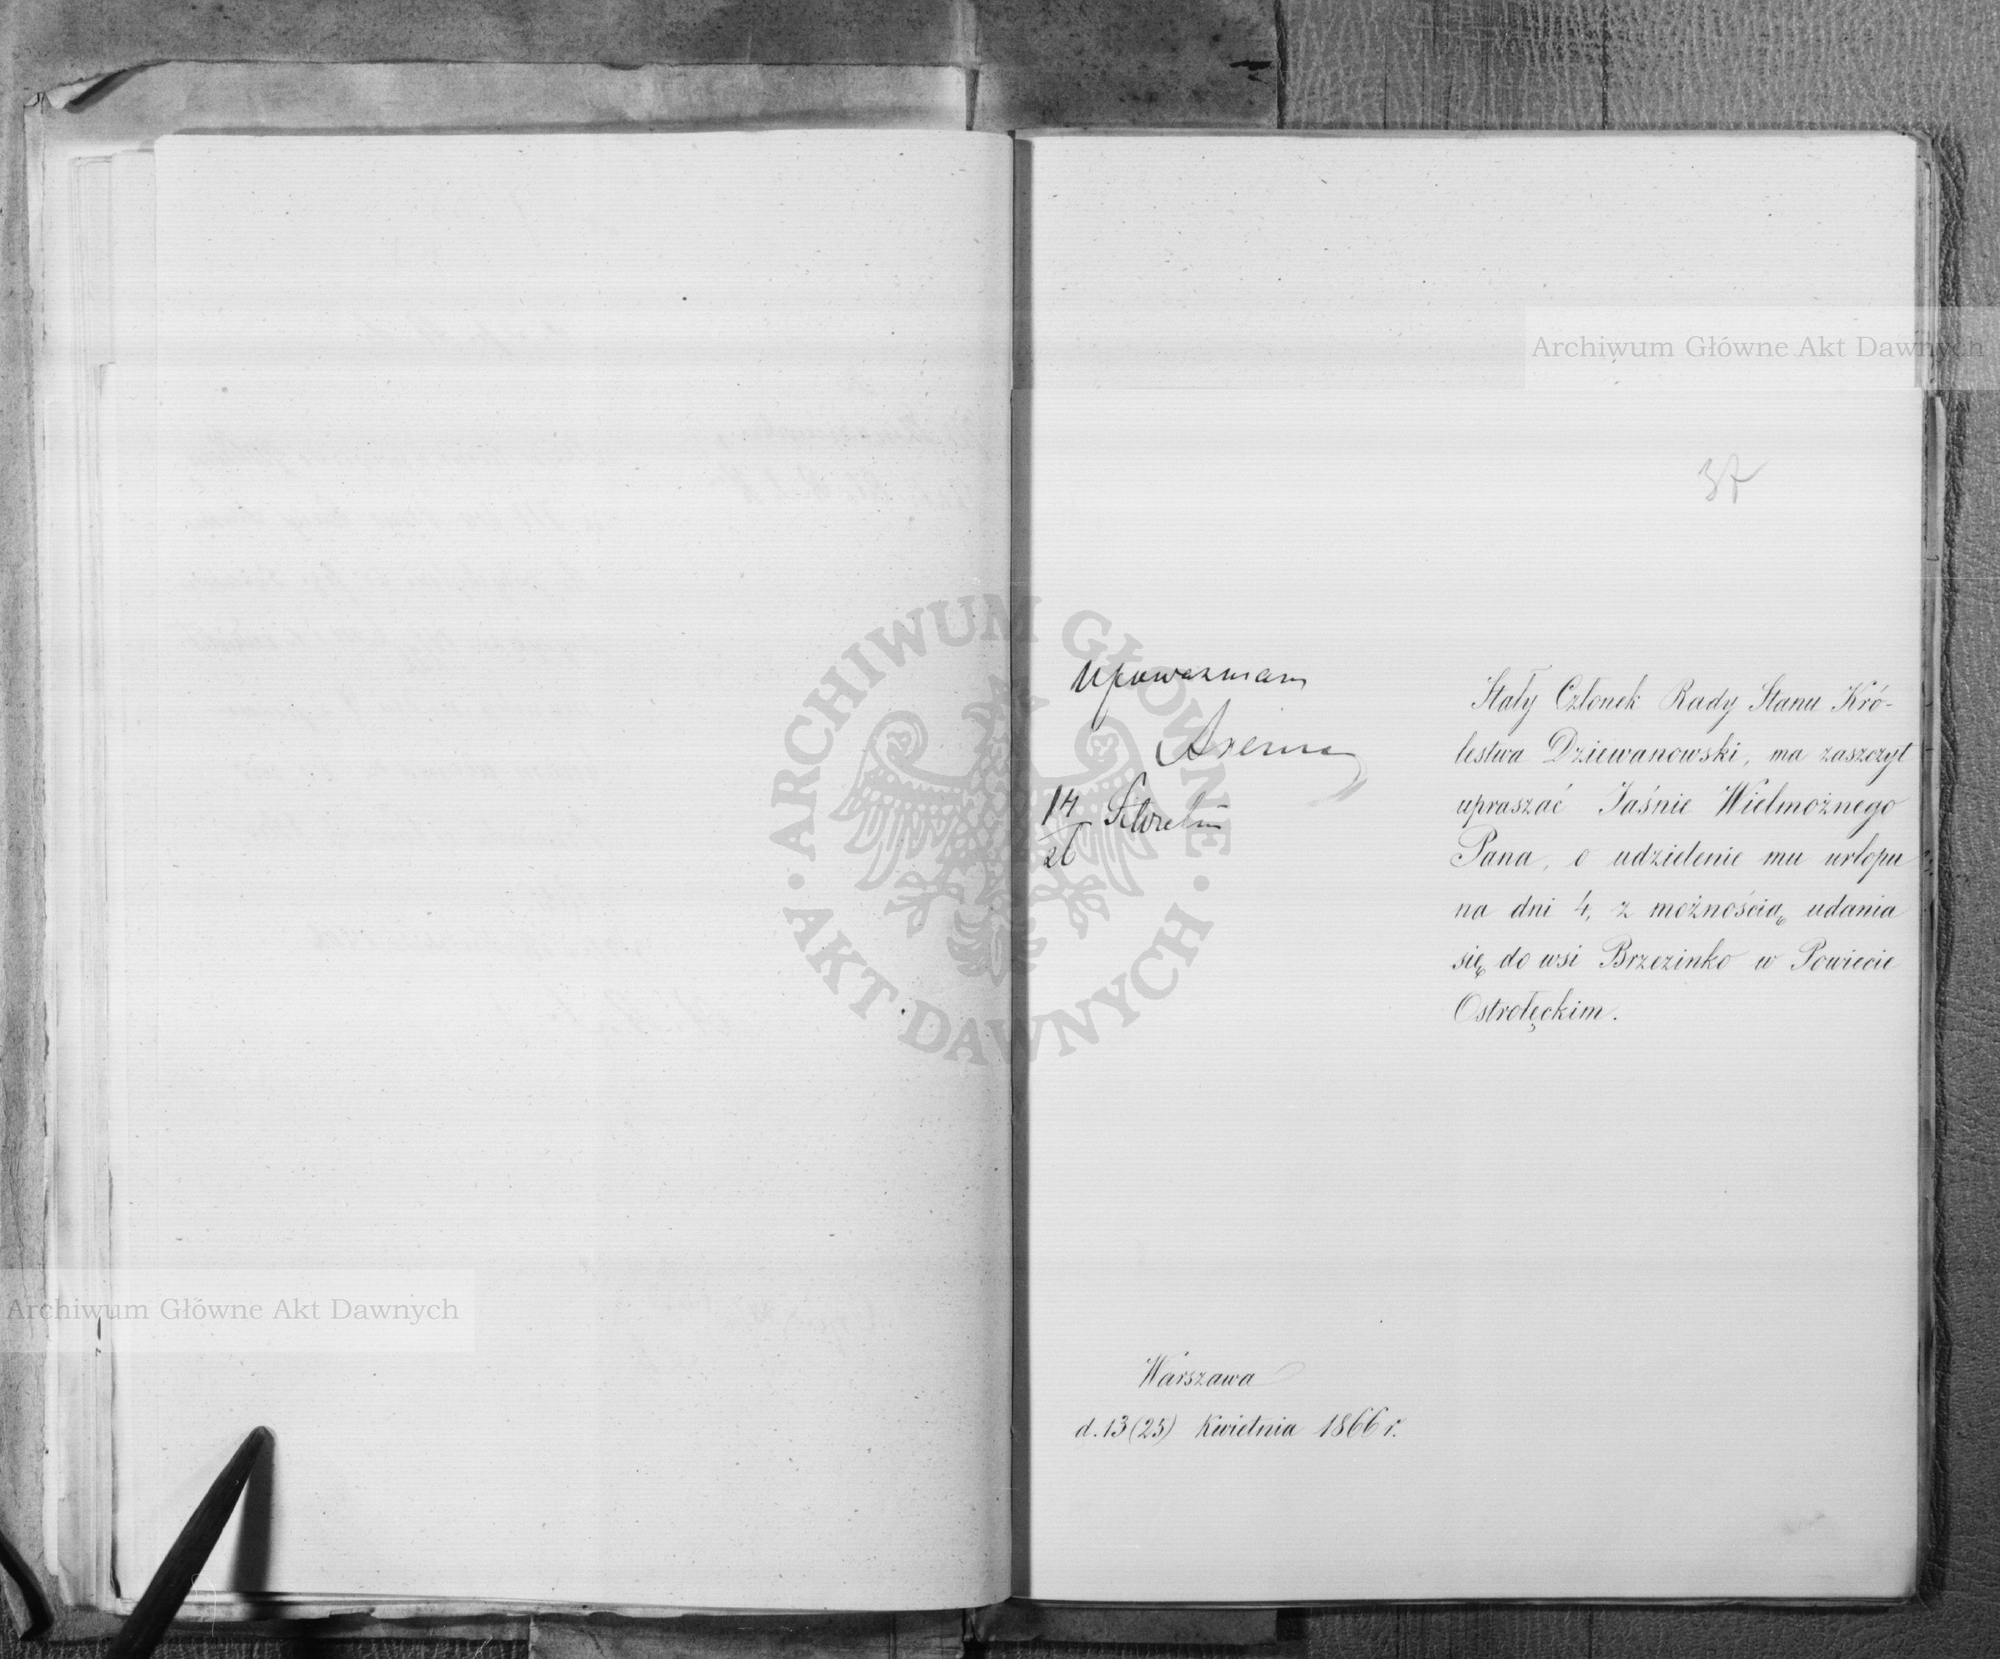 37
Upoważniam
14
26
Stały Członek Rady Stanu Kró-
lestwa Dziewanowski, ma zaszczyt
upraszać Jaśnie Wielmożnego
Pana, o udzielenie mu urlopu
na dni 4, z możnością udania
się do wsi Brzezinko w Powiecie
Ostrołęckim.
Warszawa
d. 13 (25) Kwietnia 1866 r.
Archiwum Główne Akt Dawnych
ARCHIWUM GŁÓWNE
AKT DAWNYCH
Archiwum Główne Akt Dawnych